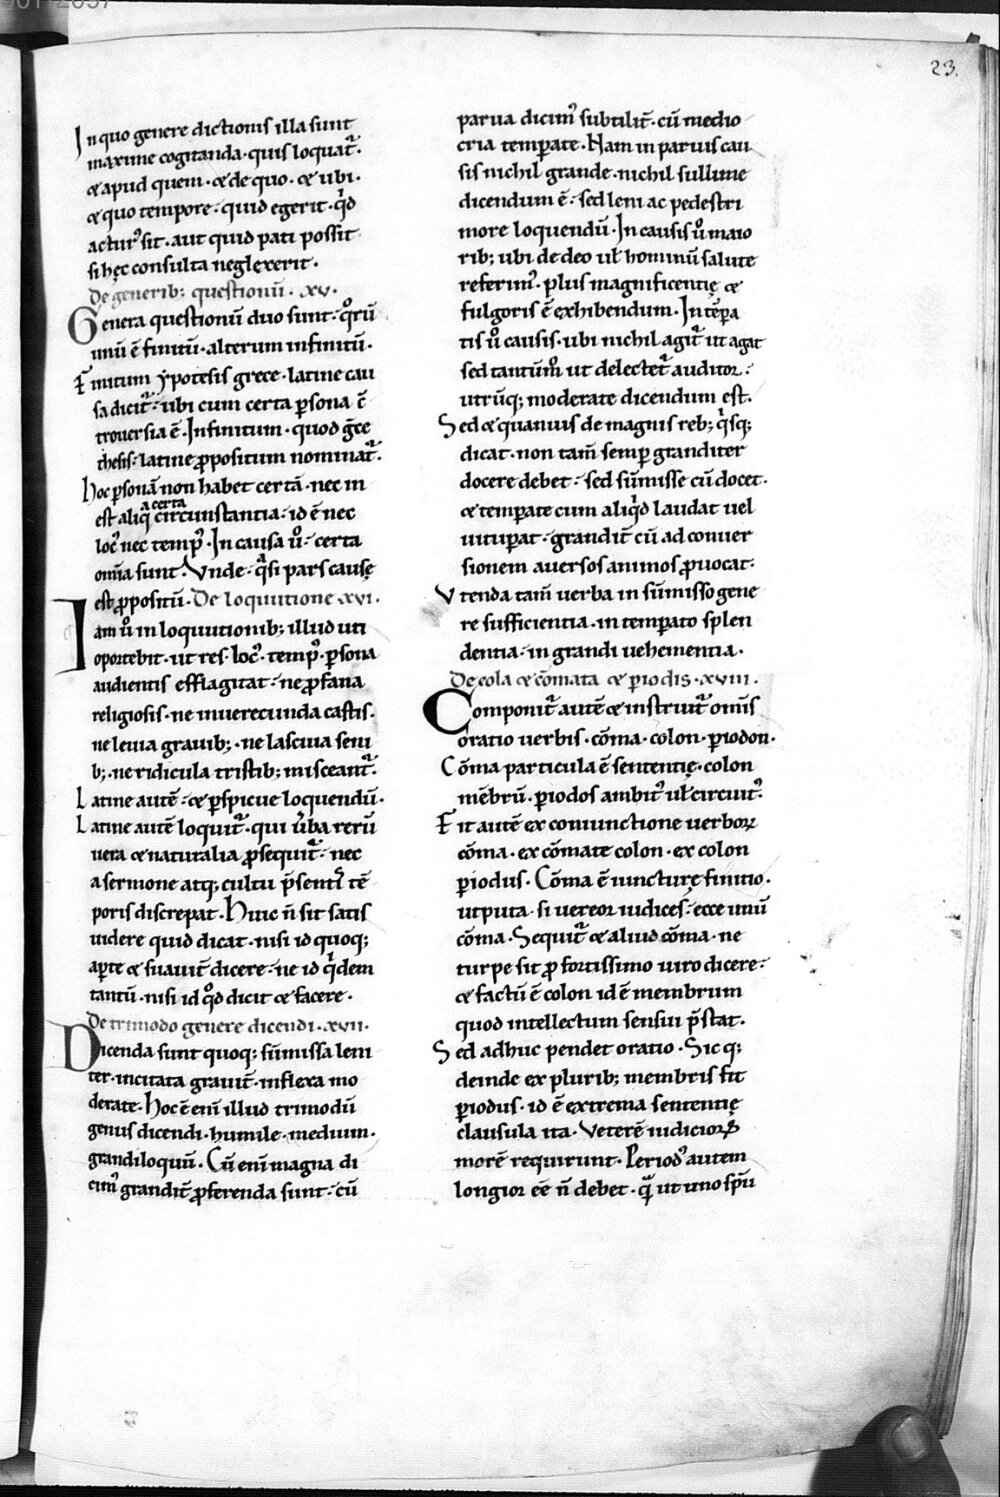 23.
In quo genere dictionis illa sunt
maxime cogitanda · quis loquat᷑ ·
⁊ apud quem · ⁊ de quo · ⁊ ubi ·
⁊ quo tempore · quid egerit · qͥd
actur᷒ sit · aut quid pati possit
si hęc consulta neglexerit ·
De generib; questionū · xv ·
Genera questionū duo sunt · qͦrū
unū ē finitū · alterum infinitū ·
Finitum ẏpotesis grece · latine cau
sa dicit᷑ · ubi cum certa ꝑsona c̄
trouersia ē · Infinitum · quod gͬce
thesis · latine ꝓpositum nominat᷑ ·
hoc ꝑsonā non habet certā · nec in
est aliqͣ circunstantia · id ē nec
a certa
loc᷒ nec temp᷒ · In causa uͦ · certa
om̄ia sunt · Vnde · qͣsi pars causę
est ꝓpositū · De loquutione xvi ·
Iam uͦ in loquutionib; illud uti
oportebit · ut res · loc᷒ · temp᷒ · ꝑsona
audientis efflagitat · ne ꝓfana
religiosis · ne inuerecunda castis ·
ne leuia grauib; · ne lasciua seni
b; · ne ridicula tristib; misceant᷑ ·
Latine autē · ⁊ ꝑspicue loquendū ·
Latine autē loquit᷑ · qui uͥba rerū
uera ⁊ naturalia ꝓsequit᷑ · nec
a sermone atq; cultu p̄sentis tē
poris discrepat · Huic n̄ sit satis
uidere quid dicat · nisi id quoq;
aꝑte ⁊ suauit̄ dicere · ne id qͥdem
tantū · nisi id qͦd dicit ⁊ facere ·
De trimodo genere dicendi · xvii ·
Dicenda sunt quoq; sūmissa leni
ter · incitata grauit̄ · inflexa mo
derate · Hoc ē eni᷒ illud trimodū
genus dicendi · humile · medium ·
grandiloquū · Cū eni᷒ magna di
cim᷒ grandit̄ ꝓferenda sunt · cū
parua dicim᷒ subtilit̄ · cū medio
cria temꝑate · Nam in paruis cau
sis nichil grande · nichil sullime
dicendum ē · sed leni ac pedestri
more loquendū · In causis uͦ maio
rib; ubi de deo uł hominū salute
referim᷒ · plus magnificentię ⁊
fulgoris ē exhibendum · In tēꝑa
tis uͦ causis · ubi nichil agit᷑ ut agat
sed tantūmͦ ut delectet᷑ auditor ·
utrūq; moderate dicendum est ·
Sed ⁊ quanuis de magnis reb; qͥsq;
dicat · non tam̄ semꝑ granditer
docere debet · sed sūmisse cū docet ·
⁊ temꝑate cum aliqͥd laudat uel
uituꝑat · grandit̄ cū ad conuer
sionem auersos animos ꝓuocat ·
Vtenda tam̄ uerba in sūmisso gene
re sufficientia · in temꝑato splen
dentia · in grandi uehementia ·
De cola ⁊ cōmata ⁊ ꝑiodis · xviii ·
Componit᷑ autē ⁊ instruit᷑ omīs
oratio uerbis · cōma · colon · ꝑiodon ·
Cōma particula ē sententię · colon
mēbrū · ꝑiodos ambit᷒ uł circuit᷒ ·
Fit autē ex coniunctione uerboꝝ
cōma · ex cōmate colon · ex colon
ꝑiodus · Cōma ē iuncturę finitio ·
utputa · si uereor iudices · ecce unū
cōma · Sequit᷑ ⁊ aliud cōma · ne
turpe sit ꝓ fortissimo uiro dicere ·
⁊ factū ē colon id ē membrum
quod intellectum sensui p̄stat ·
Sed adhuc pendet oratio · Sicq;
deinde ex plurib; membris fit
ꝑiodus · id ē extrema sententię
clausula ita · Veterē iudicioꝝ
morē requirunt · Period᷒ autem
longior eē n̄ debet · qͣ ut uno spū